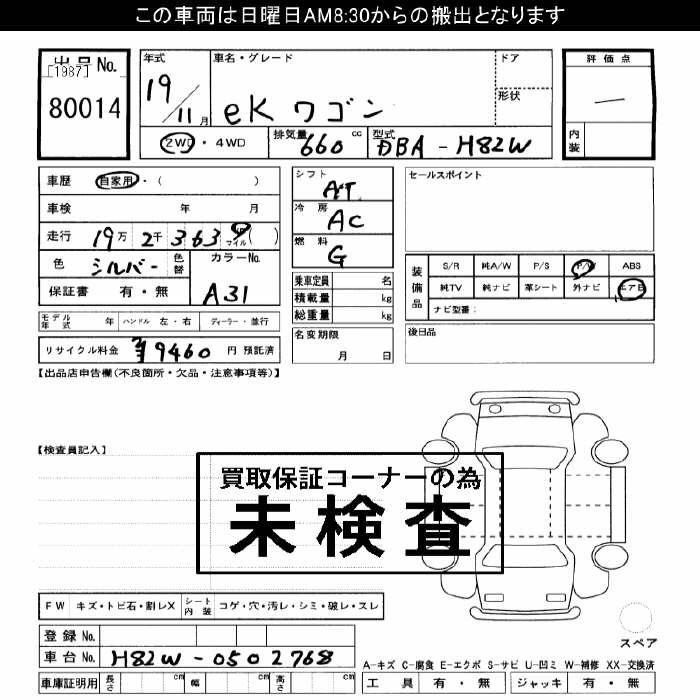 この車両は日曜日AM8:30からの搬出となります
出品No.
[1987]
80014
年式
19/11月
車名・グレード
eKワゴン
ドア
形状
評価点
—
内装
2WD・4WD
排気量 660 cc
型式 DBA-H82W
車歴 自家用・( )
車検 年 月
走行 19万 2千 363 マイル( )
色 シルバー 色替
カラーNo. A31
保証書 有・無
シフト AT
冷房 AC
燃料 G
乗車定員 名
積載量 kg
総重量 kg
名変期限 月 日
セールスポイント
装備品
S/R 純A/W P/S P/W ABS
純TV 純ナビ 革シート 外ナビ エアB
ナビ型番:
後日品
モデル年式 年 ハンドル 左・右 ディーラー・並行
リサイクル料金 ¥9460 円 預託済
【出品店申告欄(不良箇所・欠品・注意事項等)】
【検査員記入】
買取保証コーナーの為
未検査
FW キズ・トビ石・割レX シート内装 コゲ・穴・汚レ・シミ・破レ・スレ
登録No.
車台No. H82W-0502768
車庫証明用 長さ cm 幅 cm 高さ cm
スペア
A-キズ C-腐食 E-エクボ S-サビ U-凹ミ W-補修 XX-交換済
工具 有・無 ジャッキ 有・無